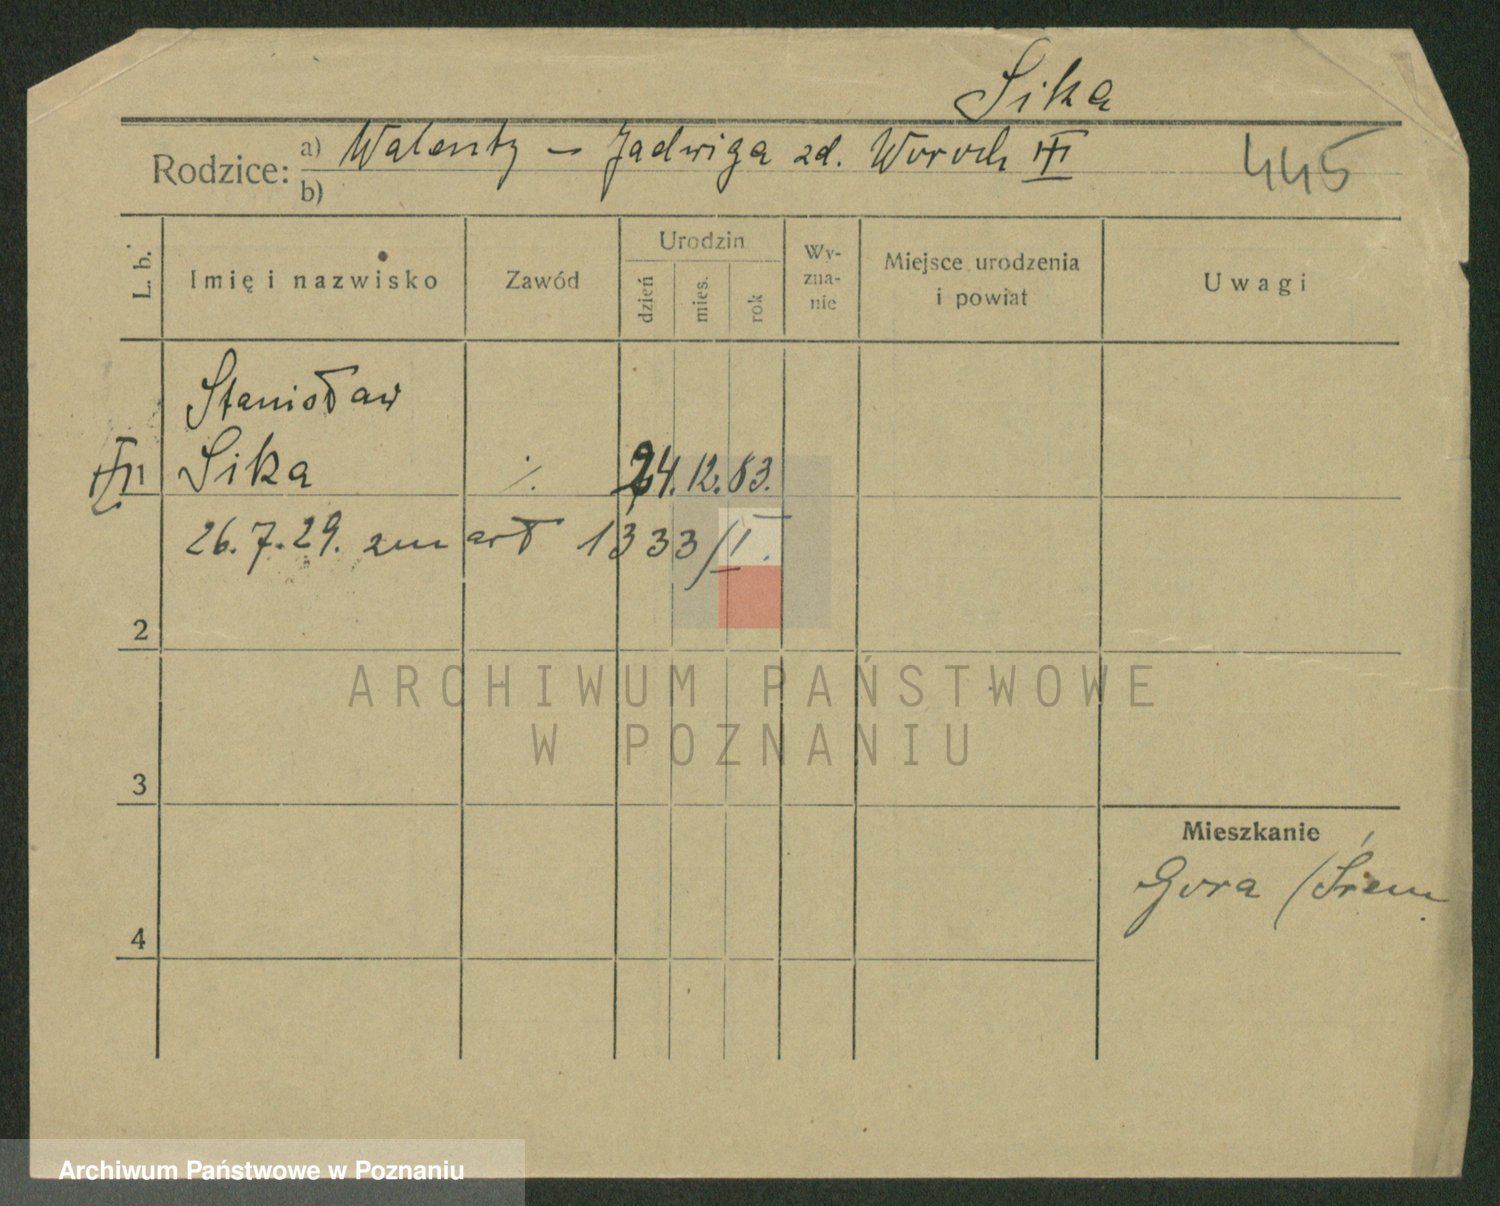 Sika
Rodzice: a) Walenty – Jadwiga zd. Woroch
b)
445
L. b.
Imię i nazwisko
Zawód
Urodzin
dzień
mies.
rok
Wy-
zna-
nie
Miejsce urodzenia
i powiat
Uwagi
Stanisław
Sika ./. 24. 12. 83.
26. 7. 29. zmarł 1333/I.
2
3
4
Mieszkanie
Gora /Śrem
ARCHIWUM PAŃSTWOWE
W POZNANIU
Archiwum Państwowe w Poznaniu